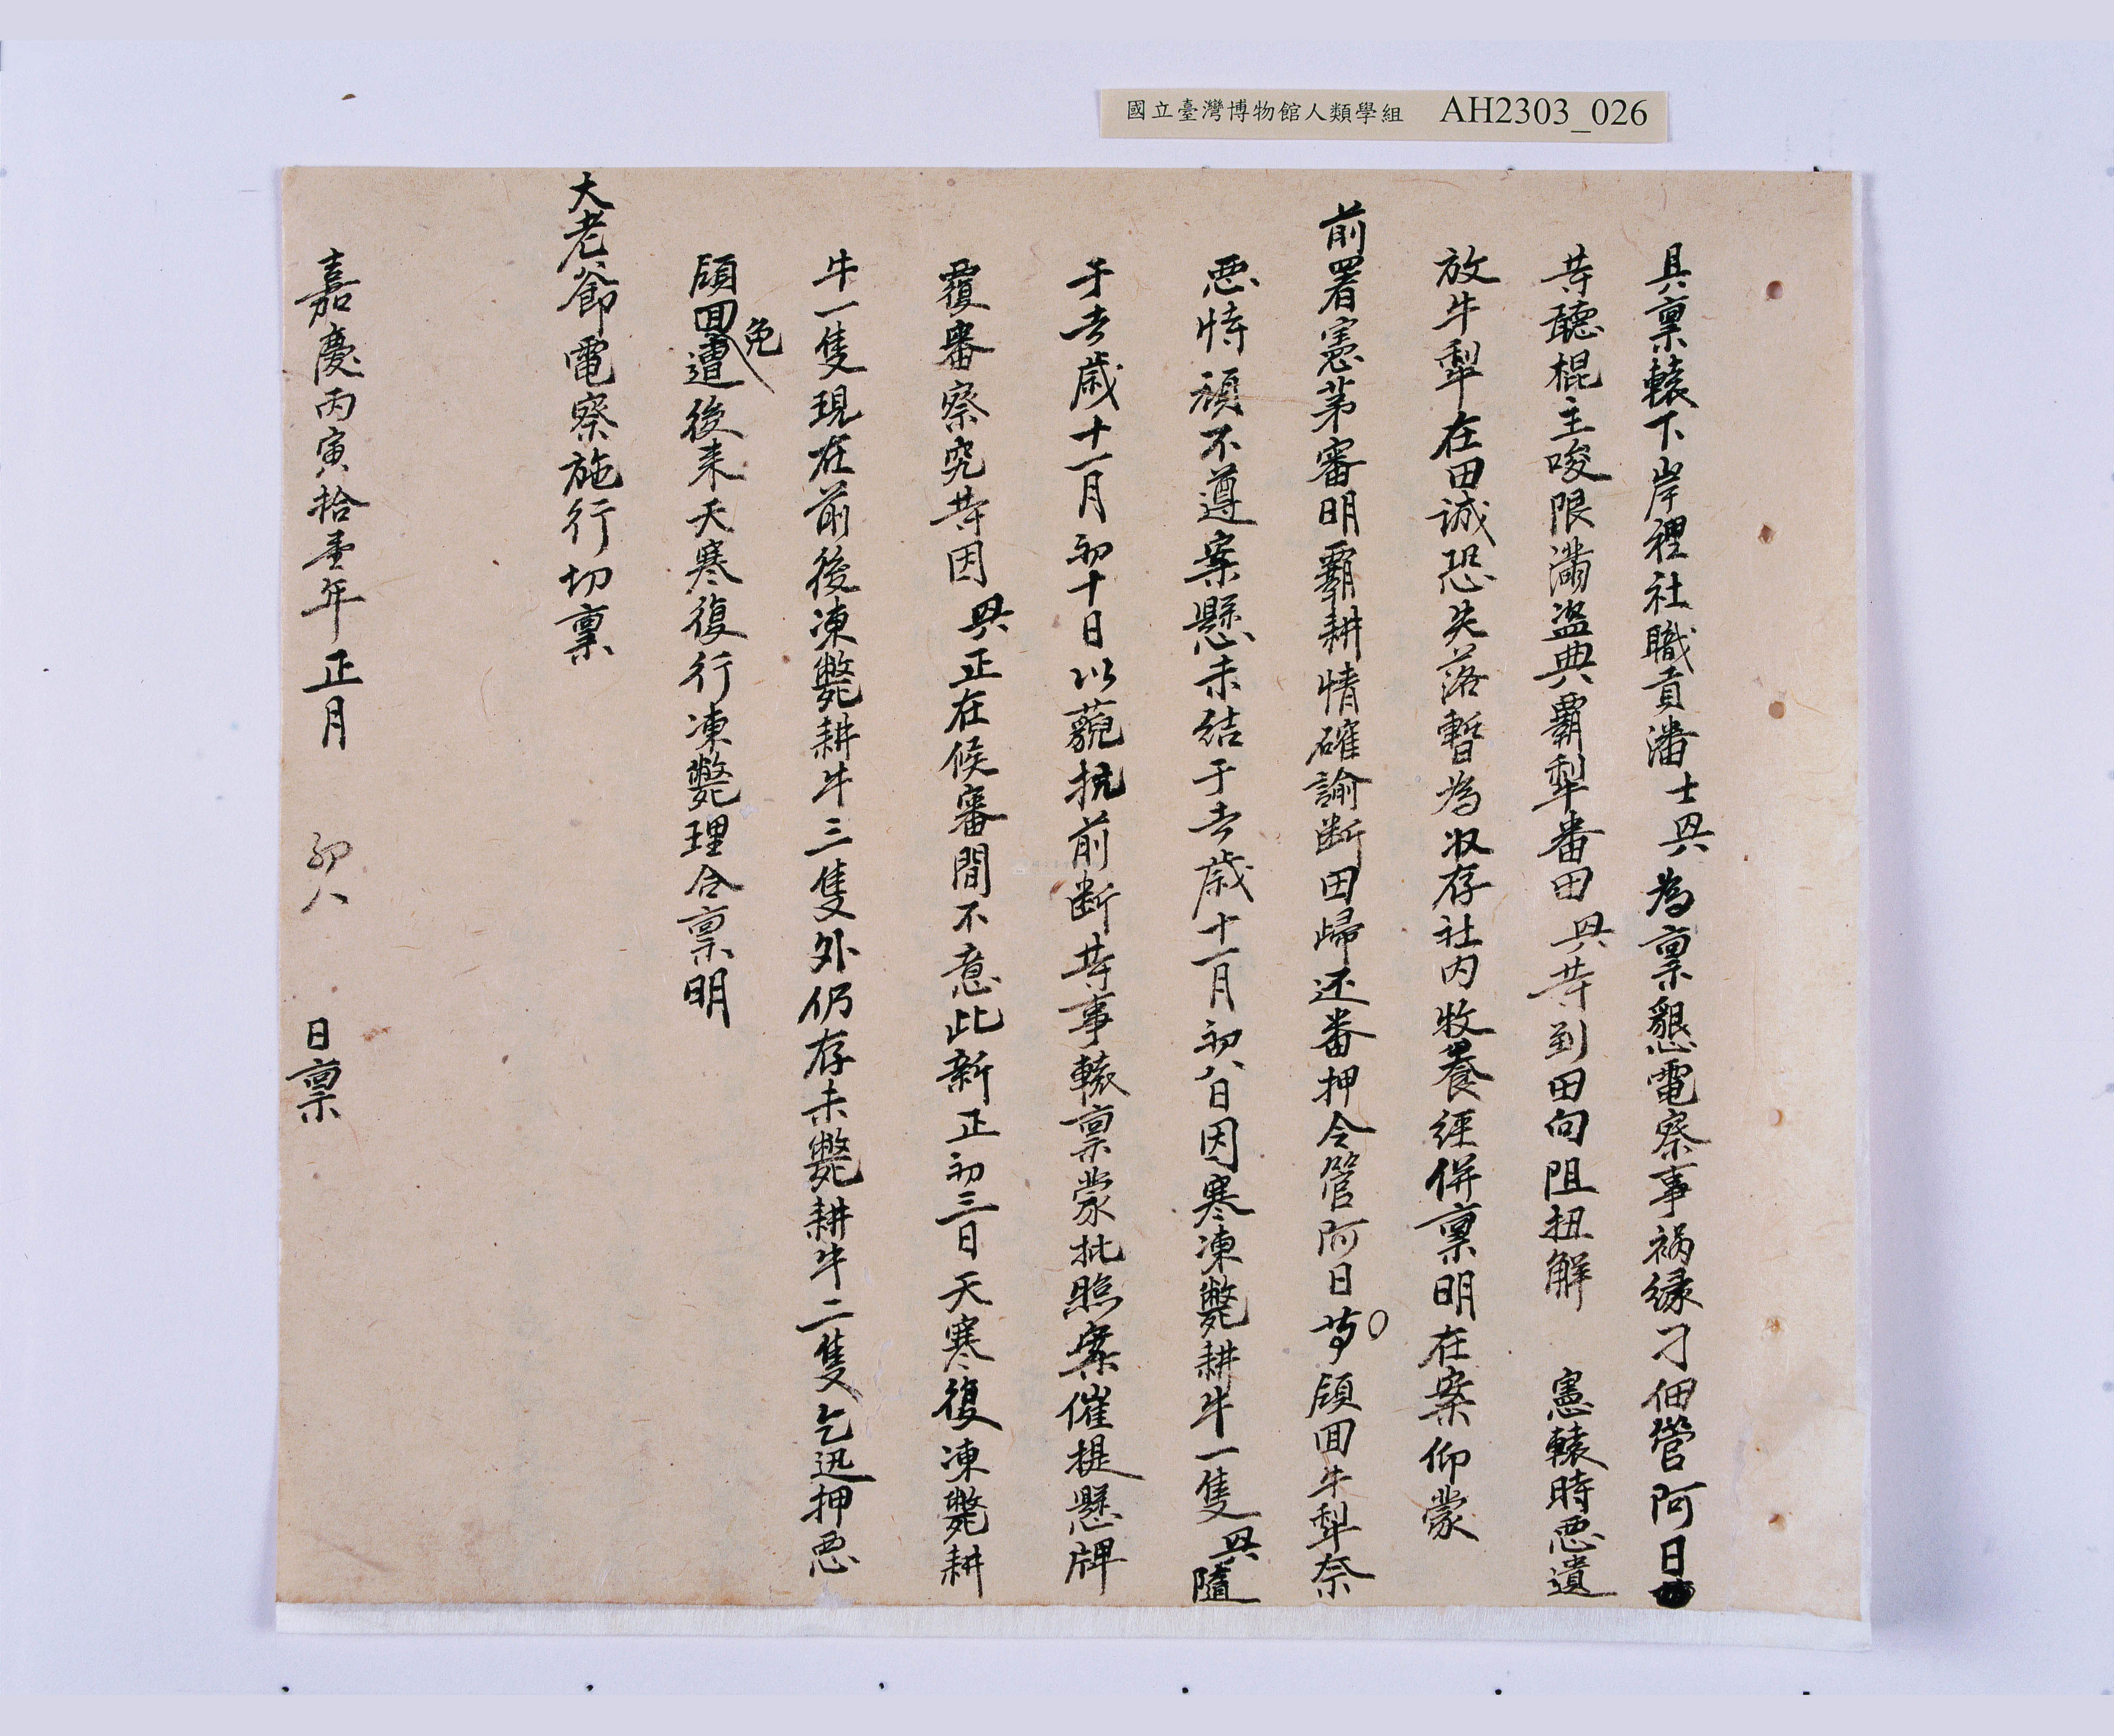 國立臺灣博物館人類學組 AH2303_026
具禀轅下岸裡社職貢潘士兴為禀懇電察事禍縁刁佃管阿日
等聽棍主唆限滿盜典覇犁番田兴等到田向阻扭解 憲轅時惡遺
放牛犁在田誠恐失落暫為收存社内牧養經併禀明在案仰蒙
前署憲苐審明覇耕情確諭断田歸还番押令管阿日等領囬牛犁奈
惡恃頑不遵案懸未结于去歲十一月初八日因寒凍斃耕牛一隻兴隨
于去歲十一月初十日以藐抗前断等事轅禀蒙批照案催提懸牌
覆審察究等因兴正在候審間不意此新正初三日天寒復凍斃耕
牛一隻現在前後凍斃耕牛三隻外仍存未斃耕牛二隻乞迅押惡
領囬免遭後来天寒復行凍斃理合禀明
大老爺電察施行切禀
嘉慶丙寅拾壹年正月 初八 日禀